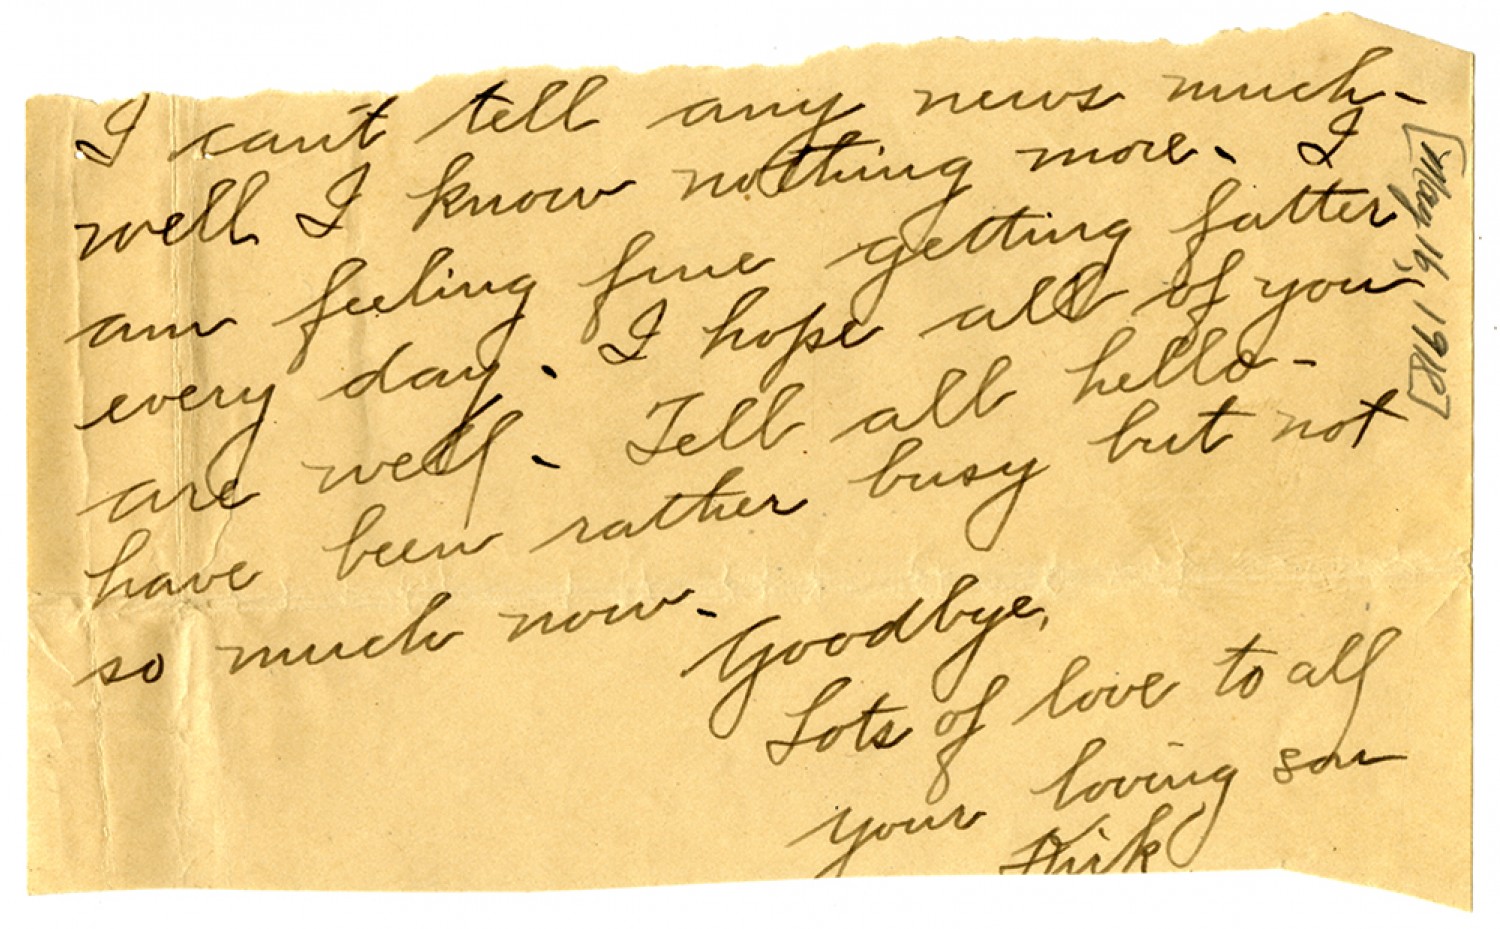 I can't tell any news much-
well I know nothing more. I
am feeling fine getting fatter
every day. I hope all of you
are well. Tell all hello-
have been rather busy but not
so much now.
Goodbye,
Lots of love to all
your loving son
Kirk
[May 16, 1918]